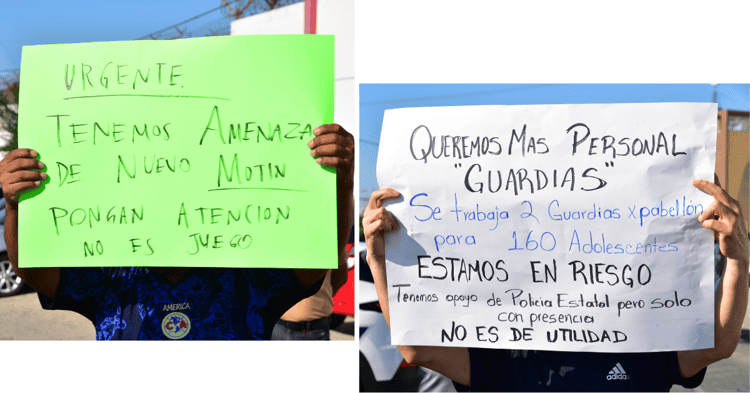 URGENTE.
TENEMOS AMENAZA
DE NUEVO MOTIN
PONGAN ATENCION
NO ES JUEGO
AMERICA
CA
QUEREMOS MAS PERSONAL
"GUARDIAS"
Se trabaja 2 Guardias x pabellón
para 160 Adolescentes
ESTAMOS EN RIESGO
Tenemos apoyo de Policia Estatal pero solo
con presencia
NO ES DE UTILIDAD
adidas